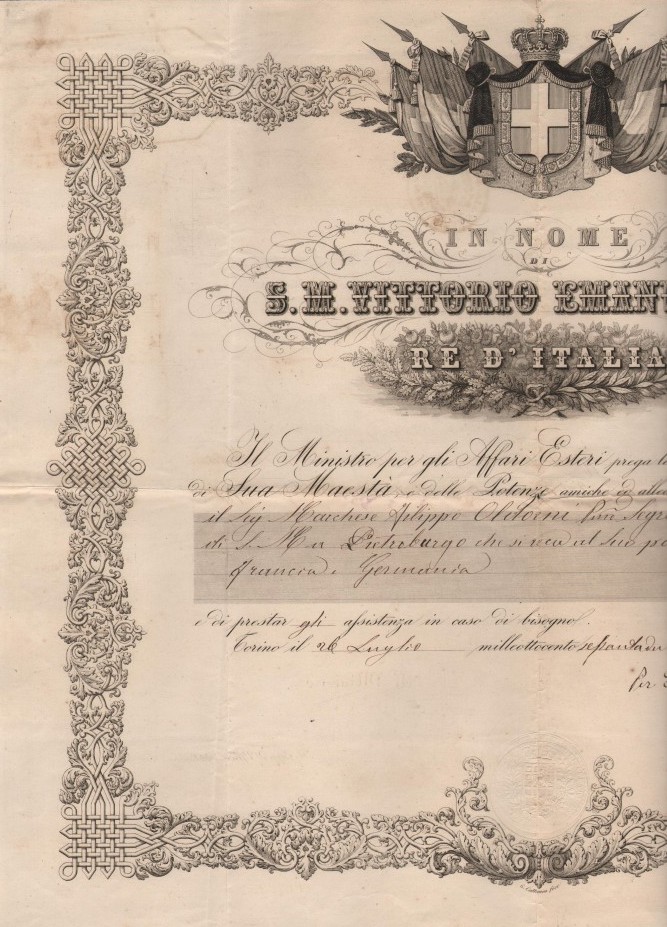 IN NOME
DI
S. M. VITTORIO EMAN
RE D' ITALIA
Il Ministro per gli Affari Esteri prega
di Sua Maestà, e delle Potenze amiche ed alle
il Sig Marchese Filippo Oldoini Segre
di S. M. a Pietroburgo che si reca al suo po
Francia e Germania
e di prestar gli assistenza in caso di bisogno.
Torino il 26 Luglio milleottocento sessantadu
Per